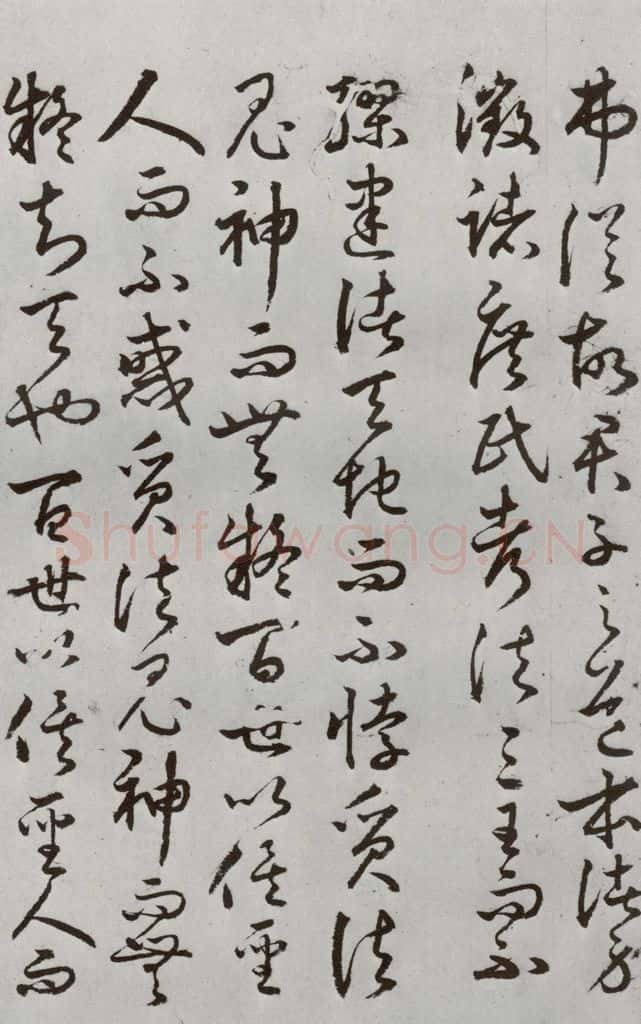 弗從故君子之道本諸身
徵諸庶民考諸三王而不
繆建諸天地而不悖質諸
鬼神而無疑百世以俟聖
人而不惑質諸鬼神而無
疑知天也百世以俟聖人而
Shufawang.CN